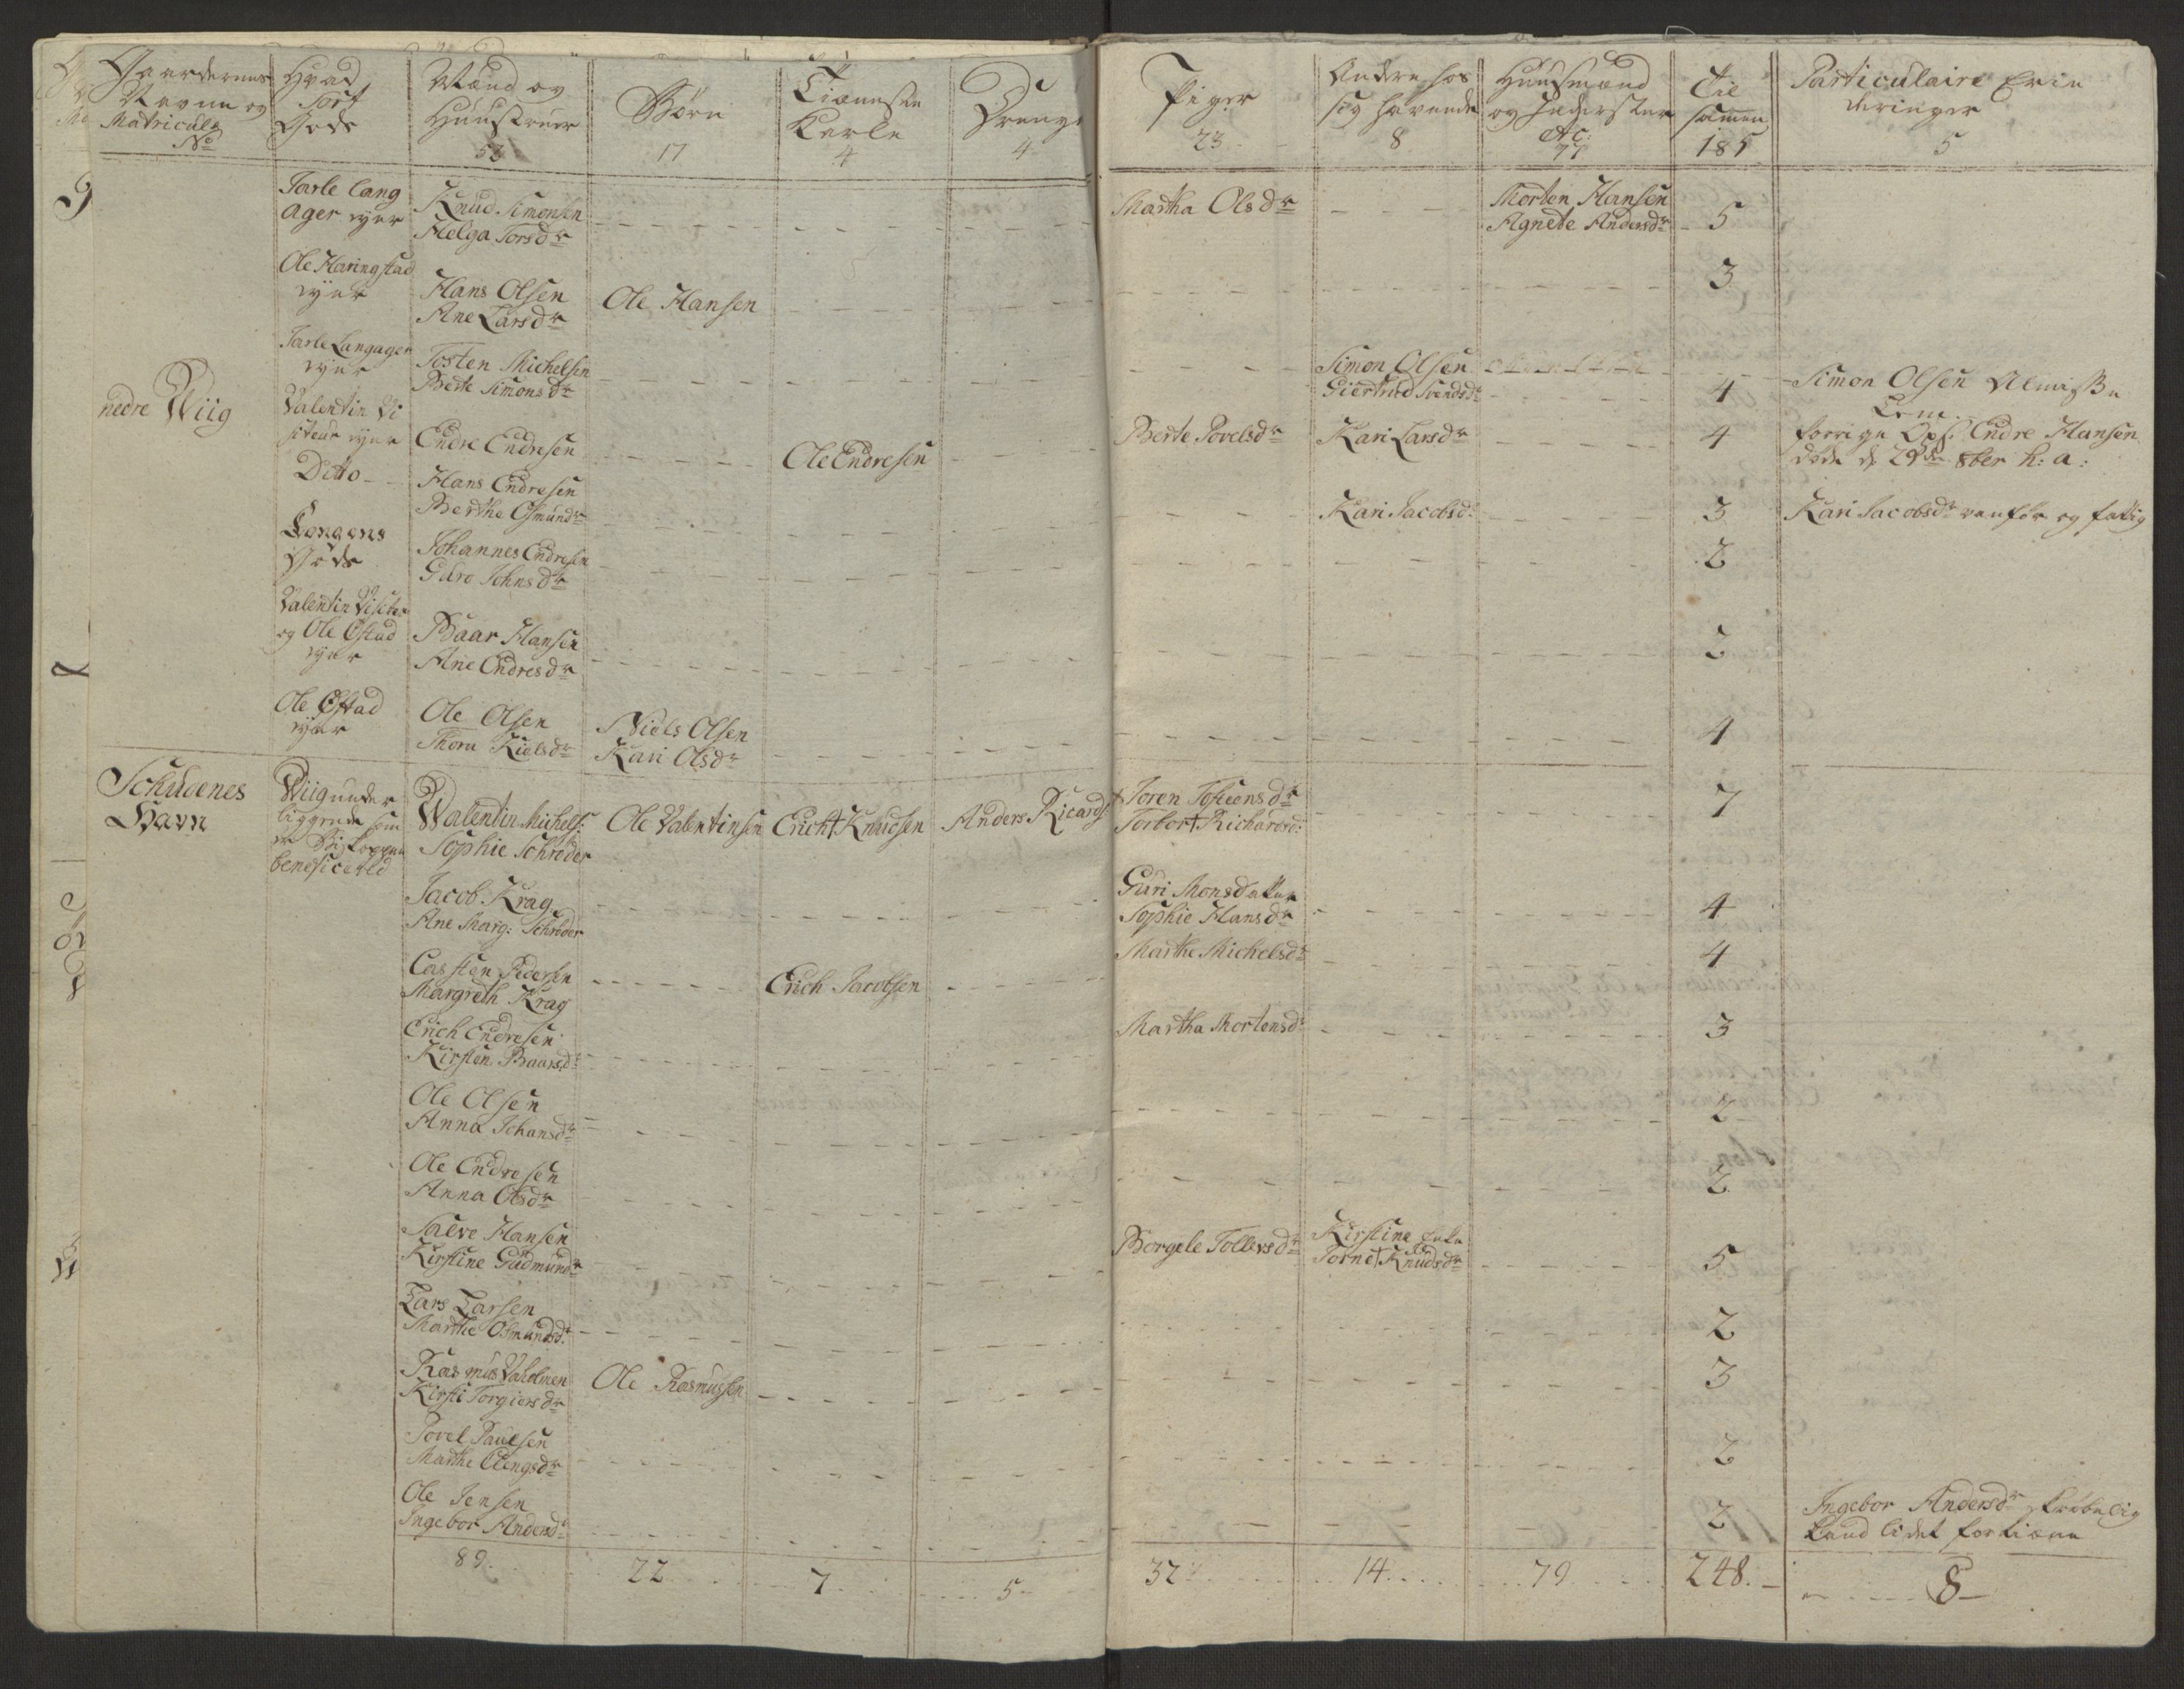 Gaardernes
Navne og
Matriculs
No
Hvad
sort
Gods
Mænd og
Huustruer
53
Børn
17
Tiæneste
Karle
4
Drenge
4
Piger
23
Andre hos
sig havende
8
Huusmænd
og Inderster
etc:
77
Til
samen
185
Particulaire Erin
dringer
5
nedre Wiig
Tarle Lang
ager eyer
Knud Simonsen
Helga Torsdr
Martha Olsdr
Morten Hansen
Agnete Andersdr
5
Ole Haringstad
eyer
Hans Olsen
Ane Larsdr
Ole Hansen
3
Tarle Langager
eyer
Tosten Michelsen
Berte Simonsdr
Simon Olsen
Giertrud Svendsdr
4
Simon Olsen Almisse
Lem.
Valentin Vi
siteur eyer
Endre Endresen
Ole Endresen
Berte Povelsdr
Kari Larsdr
4
forrige Ops. Endre Hansen
døde d 29de 8ber h: a:
Ditto
Hans Endresen
Berthe Osmundr
Kari Jacobsdr
3
Kari Jacobsdr vanfør og fattig
Kongens
Gods
Johannes Endresen
Guro Johnsdr
2
Valentin Visiteur
og Ole Østad
eyer
Baar Hansen
Ane Endresdr
2
Ole Østad
eyer
Ole Olsen
Thoru Kielsdr
Niels Olsen
Kari Olsdr
4
Schudenes
Havn
Wiig under
liggende som
er Biskoppen
beneficered
Walentin Michels:
Sophie Schrøder
Ole Valentinsen
Erich Knudsen
Anders Ricards:
Joren Tosteensdr
Torbor Richardsd:
7
Jacob Krag
Ane Marg: Schrøder
Guri Monsdatter
Sophie Hansdr
4
Casten Pedersen
Margreth Krag
Erich Jacobsen
Marthe Michelsdr
4
Erich Endresen
Kirsten Baarsdr
Martha Mortensdr
3
Ole Olsen
Anna Johansdr
2
Ole Endresen
Anna Olsdr
2
Salve Hansen
Kirstine Gudmundr
Borgele Tollevsdr
Kirstine Enke
Torne Knudsdr
5
Lars Larsen
Marthe Osmundsdr
2
Rasmus Valolmen
Kirsti Torgiersdr
Ole Rasmussen
3
Povel Paulsen
Marthe Ellengsdr
2
Ole Jensen
Ingebor Andersdr
2
Ingebor Andersdr skrøbelig
kand lidet fortiæne
89.
22
7
5
32
14
79
248.
8